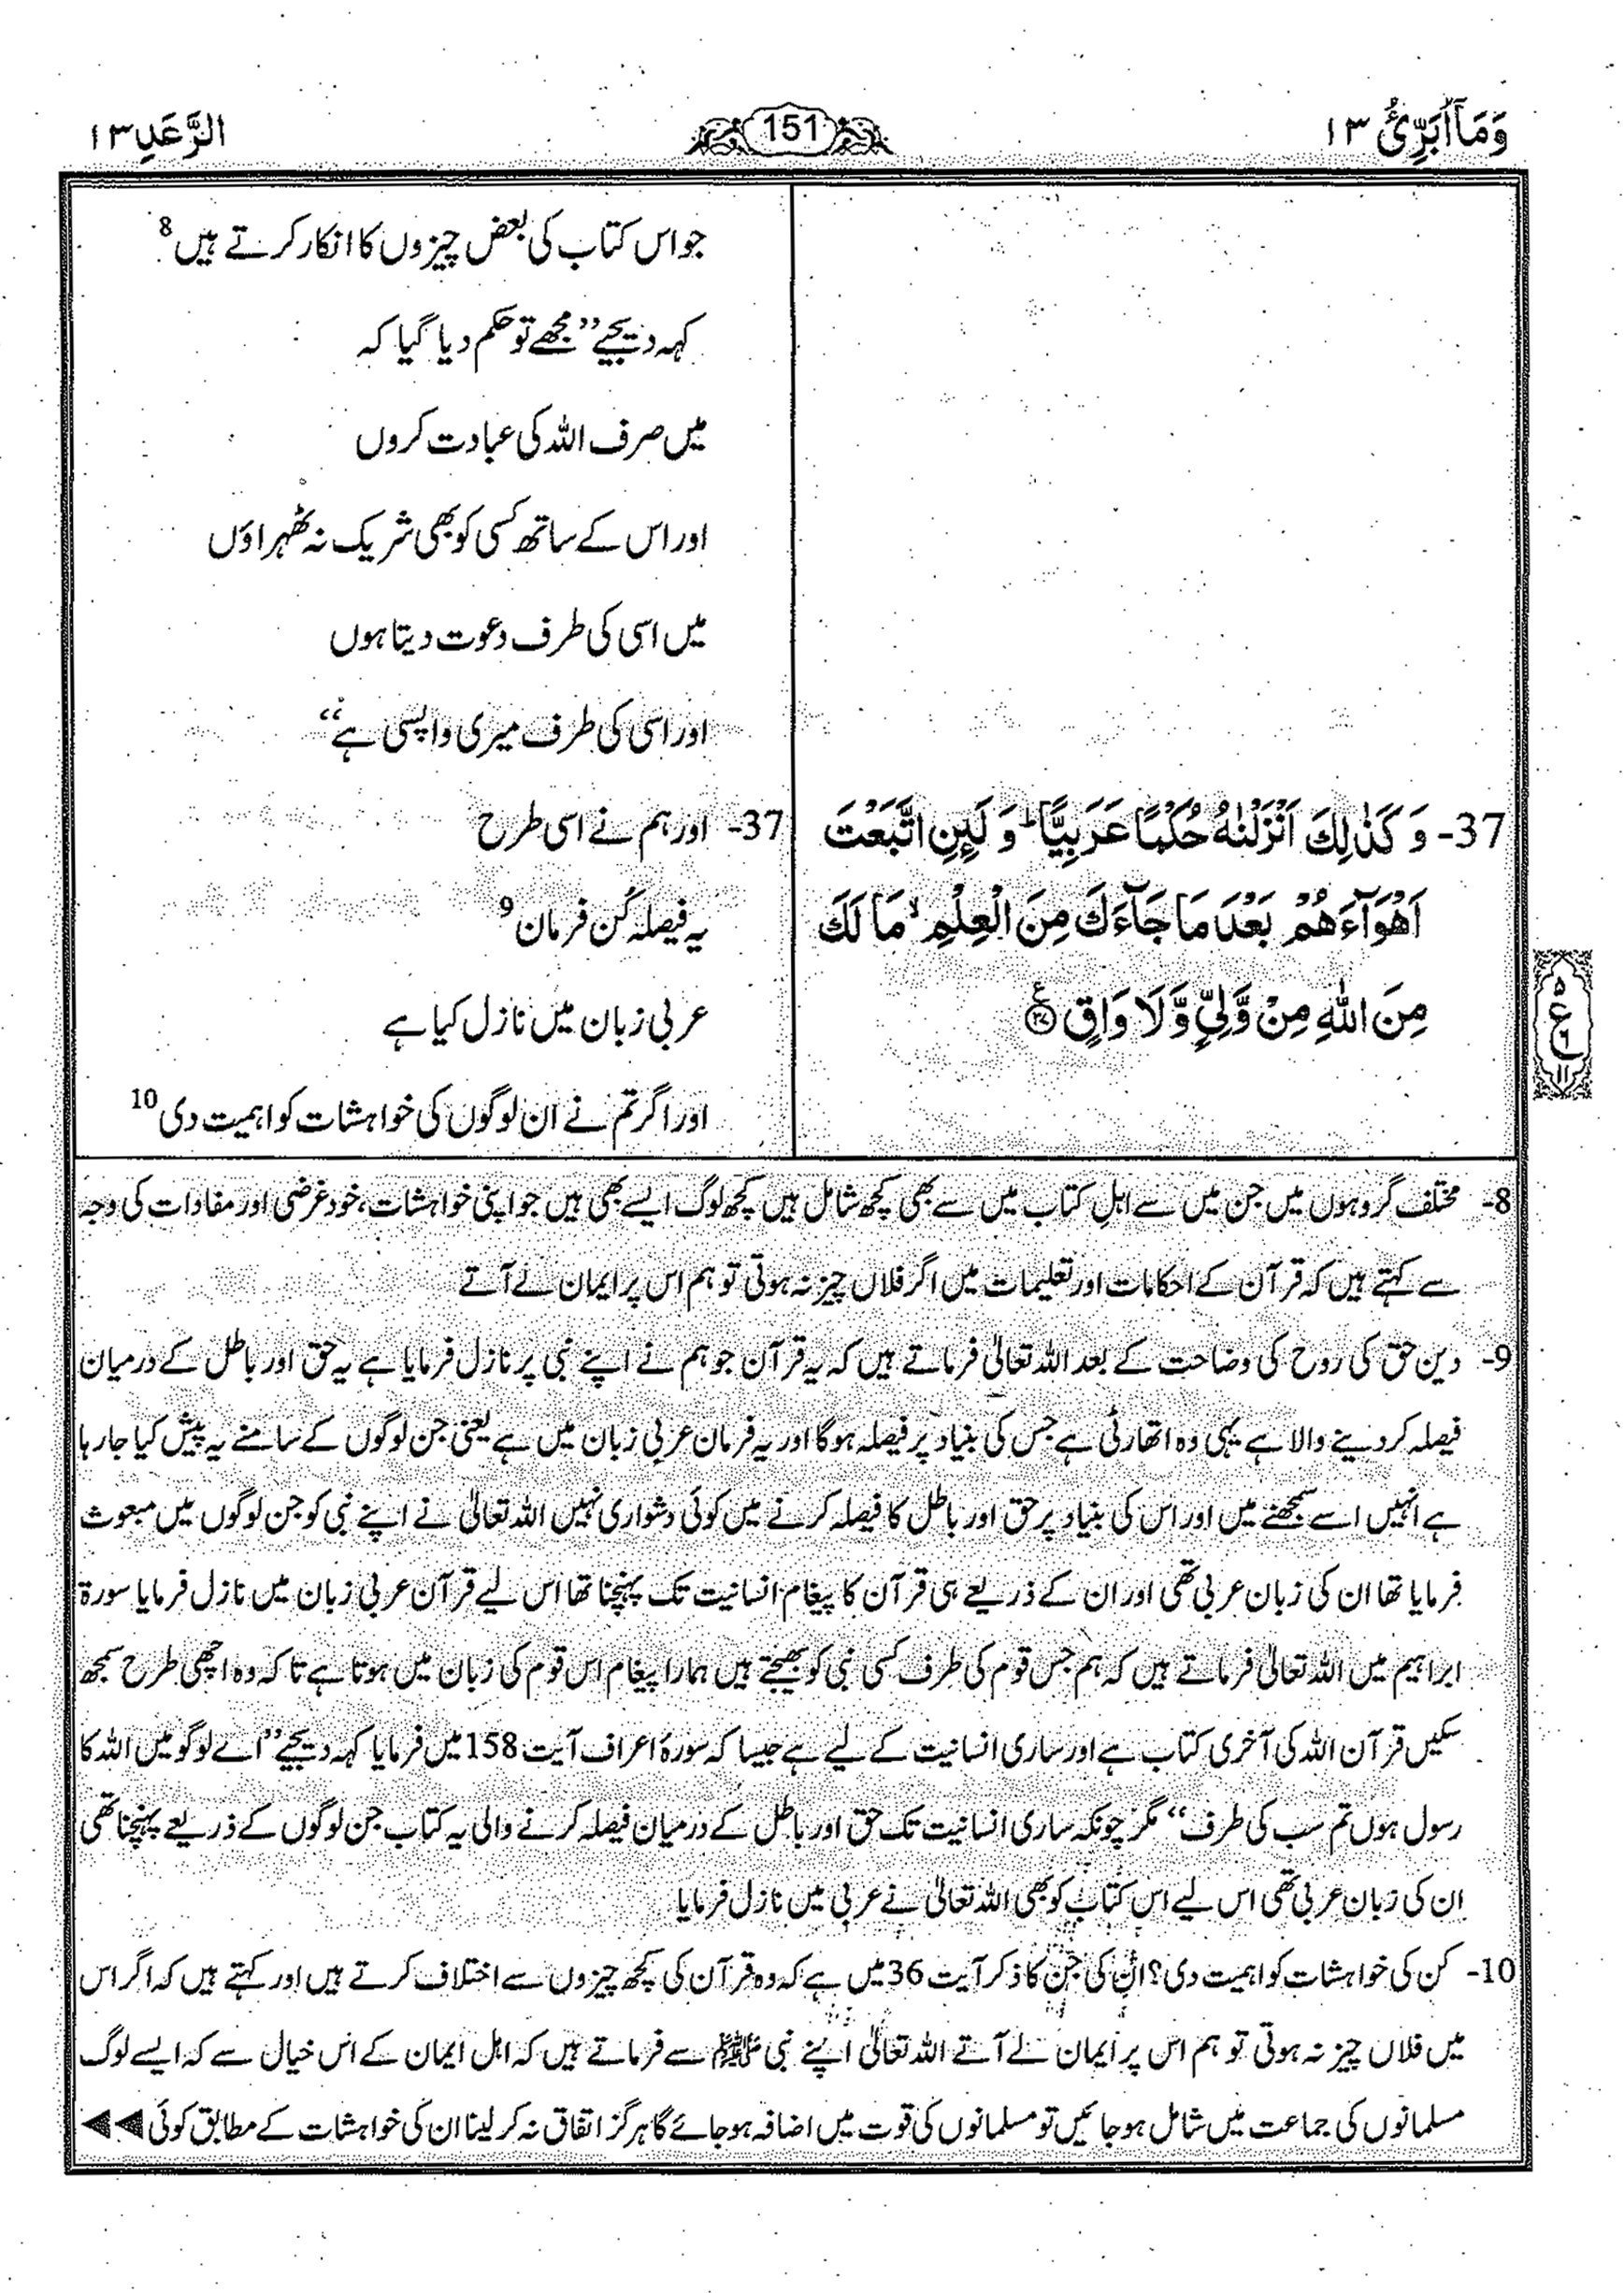 وَمَآ اُبَرِّئُ ۱۳
151
الرَّعَدِ ۱۳
جو اس کتاب کی بعض چیزوں کا انکار کرتے ہیں 8
کہہ دیجیے ”مجھے تو حکم دیا گیا کہ
میں صرف اللہ کی عبادت کروں
اور اس کے ساتھ کسی کو بھی شریک نہ ٹھہراؤں
میں اسی کی طرف دعوت دیتا ہوں
اور اسی کی طرف میری واپسی ہے“
37- وَ كَذٰلِكَ اَنْزَلْنٰهُ حُكْمًا عَرَبِيًّا ؕ وَ لَىِٕنِ اتَّبَعْتَ
اَهْوَآءَهُمْ بَعْدَ مَا جَآءَكَ مِنَ الْعِلْمِ ۙ مَا لَكَ
مِنَ اللّٰهِ مِنْ وَّلِيٍّ وَّ لَا وَاقٍ ۠﴿۳۷﴾
37- اور ہم نے اسی طرح
یہ فیصلہ کُن فرمان 9
عربی زبان میں نازل کیا ہے
اور اگر تم نے ان لوگوں کی خواہشات کو اہمیت دی 10
۵
ع
۶
۱۱
8- مختلف گروہوں میں جن میں سے اہلِ کتاب میں سے بھی کچھ شامل ہیں کچھ لوگ ایسے بھی ہیں جو اپنی خواہشات، خود غرضی اور مفادات کی وجہ
سے کہتے ہیں کہ قرآن کے احکامات اور تعلیمات میں اگر فلاں چیز نہ ہوتی تو ہم اس پر ایمان لے آتے
9- دین حق کی روح کی وضاحت کے بعد اللہ تعالیٰ فرماتے ہیں کہ یہ قرآن جو ہم نے اپنے نبی پر نازل فرمایا ہے یہ حق اور باطل کے درمیان
فیصلہ کر دینے والا ہے یہی وہ اتھارٹی ہے جس کی بنیاد پر فیصلہ ہوگا اور یہ فرمان عربی زبان میں ہے یعنی جن لوگوں کے سامنے یہ پیش کیا جا رہا
ہے انہیں اسے سمجھنے میں اور اس کی بنیاد پر حق اور باطل کا فیصلہ کرنے میں کوئی دشواری نہیں اللہ تعالیٰ نے اپنے نبی کو جن لوگوں میں مبعوث
فرمایا تھا ان کی زبان عربی تھی اور ان کے ذریعے ہی قرآن کا پیغام انسانیت تک پہنچنا تھا اس لیے قرآن عربی زبان میں نازل فرمایا سورۃ
ابراہیم میں اللہ تعالیٰ فرماتے ہیں کہ ہم جس قوم کی طرف کسی نبی کو بھیجتے ہیں ہمارا پیغام اس قوم کی زبان میں ہوتا ہے تاکہ وہ اچھی طرح سمجھ
سکیں قرآن اللہ کی آخری کتاب ہے اور ساری انسانیت کے لیے ہے جیسا کہ سورۂ اعراف آیت 158 میں فرمایا کہہ دیجیے ”اے لوگو میں اللہ کا
رسول ہوں تم سب کی طرف“ مگر چونکہ ساری انسانیت تک حق اور باطل کے درمیان فیصلہ کرنے والی یہ کتاب جن لوگوں کے ذریعے پہنچنا تھی
ان کی زبان عربی تھی اس لیے اس کتاب کو بھی اللہ تعالیٰ نے عربی میں نازل فرمایا
10- کن کی خواہشات کو اہمیت دی؟ ان کی جن کا ذکر آیت 36 میں ہے کہ وہ قرآن کی کچھ چیزوں سے اختلاف کرتے ہیں اور کہتے ہیں کہ اگر اس
میں فلاں چیز نہ ہوتی تو ہم اس پر ایمان لے آتے اللہ تعالیٰ اپنے نبی ﷺ سے فرماتے ہیں کہ اہل ایمان کے اس خیال سے کہ ایسے لوگ
مسلمانوں کی جماعت میں شامل ہو جائیں تو مسلمانوں کی قوت میں اضافہ ہو جائے گا ہرگز اتفاق نہ کر لینا ان کی خواہشات کے مطابق کوئی ◄◄